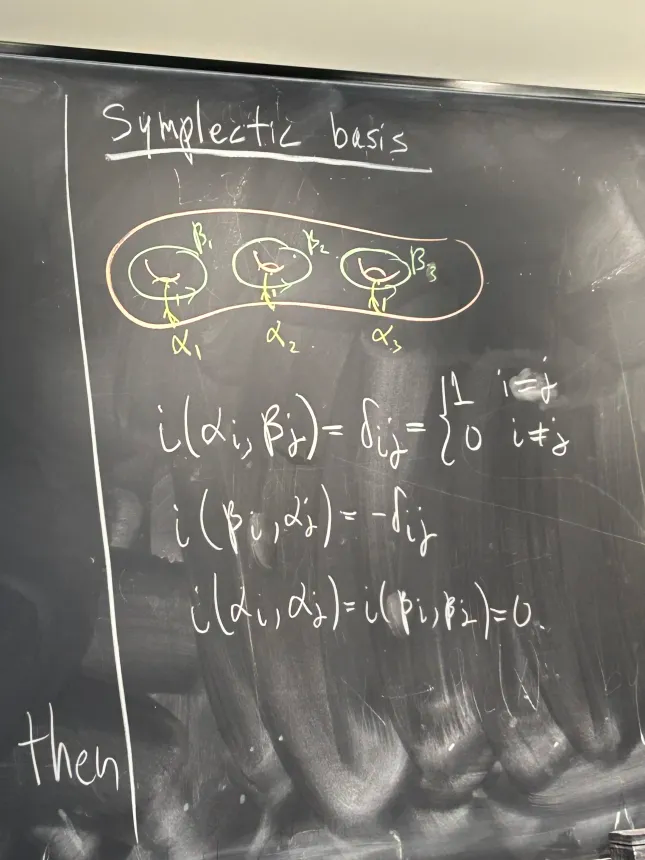 Symplectic basis
β₁ β₂ β₃
α₁ α₂ α₃
i(αi, βj) = δij = { 1 i=j
0 i≠j
i(βi, αj) = -δij
i(αi, αj) = i(βi, βj) = 0.
then